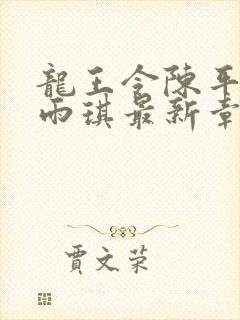 龍王令陳平
雨琪最新章
賈文荣